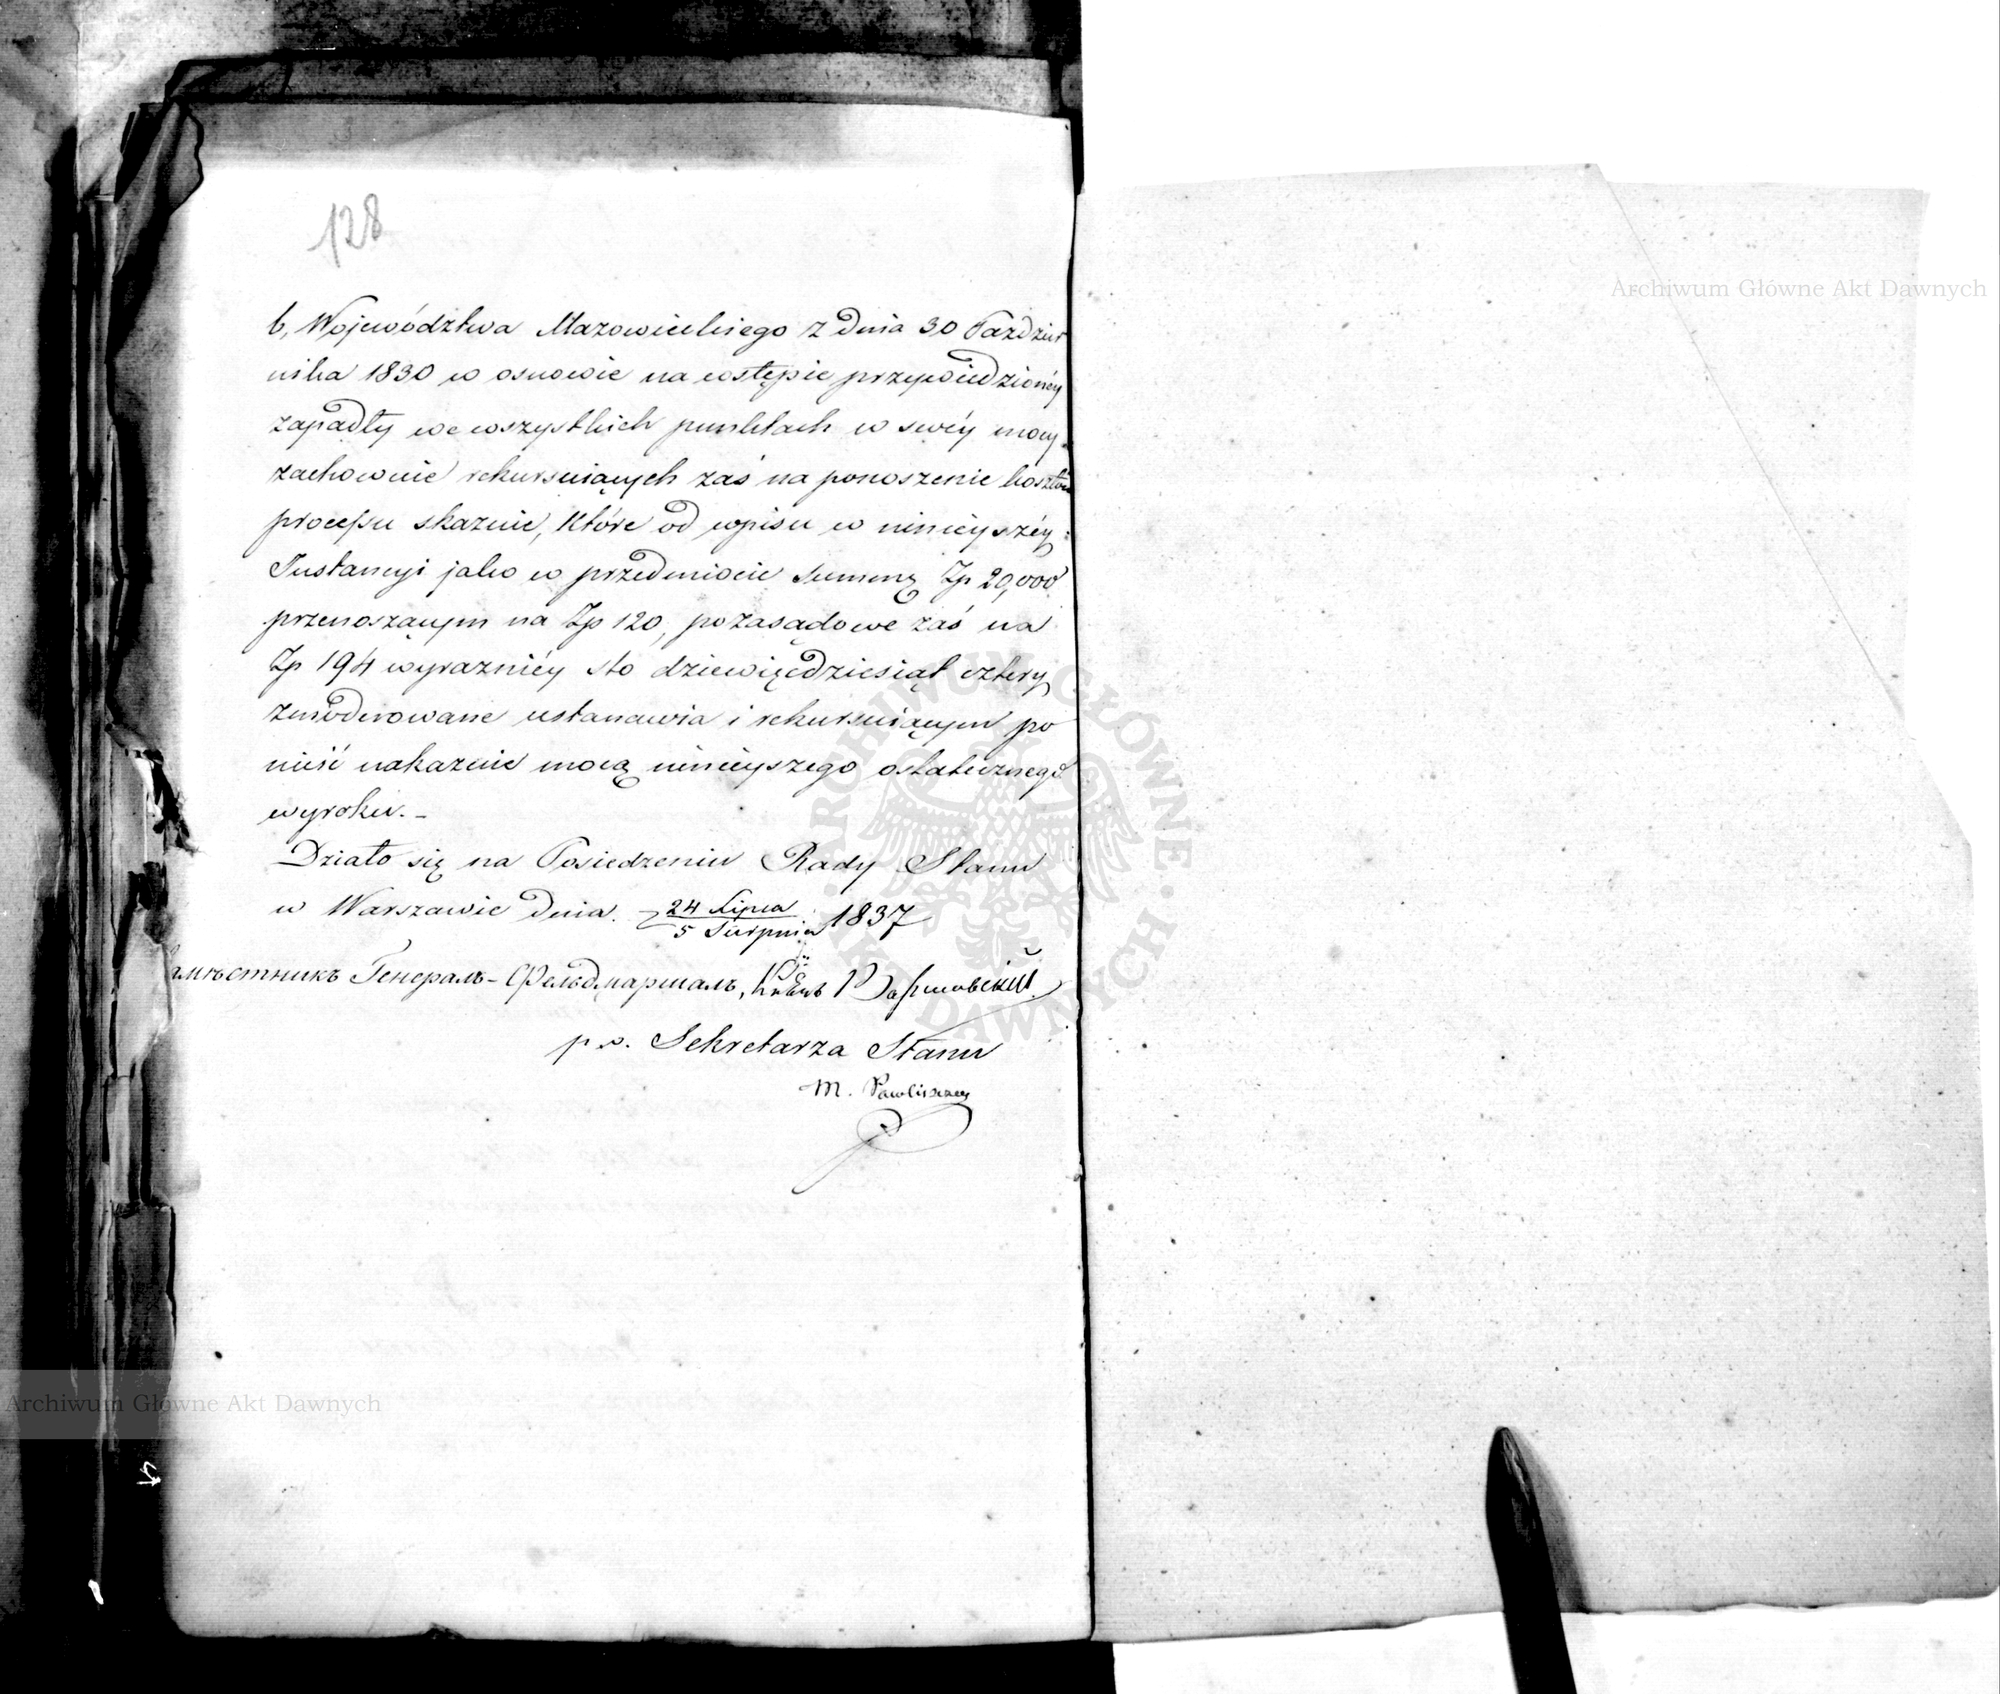 128
b. Województwa Mazowieckiego z dnia 30 Paździer
nika 1830 w osnowie na wstępie przywiedzionéy
zapadły we wszystkich punktach w swéy mocy
zachowuie rekursuiących zaś na ponoszenie kosztów
processu skazuie, które od wpisu w ninieyszéy
Instancyi jako w przedmiocie summę Zp 20,000
przenoszącym na Zp 120, pozasądowe zaś na
Zp 194 wyraźniéy sto dziewięćdziesiąt cztery
zmoderowane ustanawia i rekursuiącym po
nieść nakazuie mocą ninieyszego ostatecznego
wyroku. -
Działo się na Posiedzeniu Rady Stanu
w Warszawie dnia. 24 Lipca / 5 Sierpnia 1837
амѣстникъ Генералъ-Фельдмаршалъ, Князь Варшавскій.
p.o. Sekretarza Stanu
M. Pawliszczew
Archiwum Główne Akt Dawnych
Archiwum Główne Akt Dawnych
ARCHIWUM GŁÓWNE · AKT DAWNYCH ·